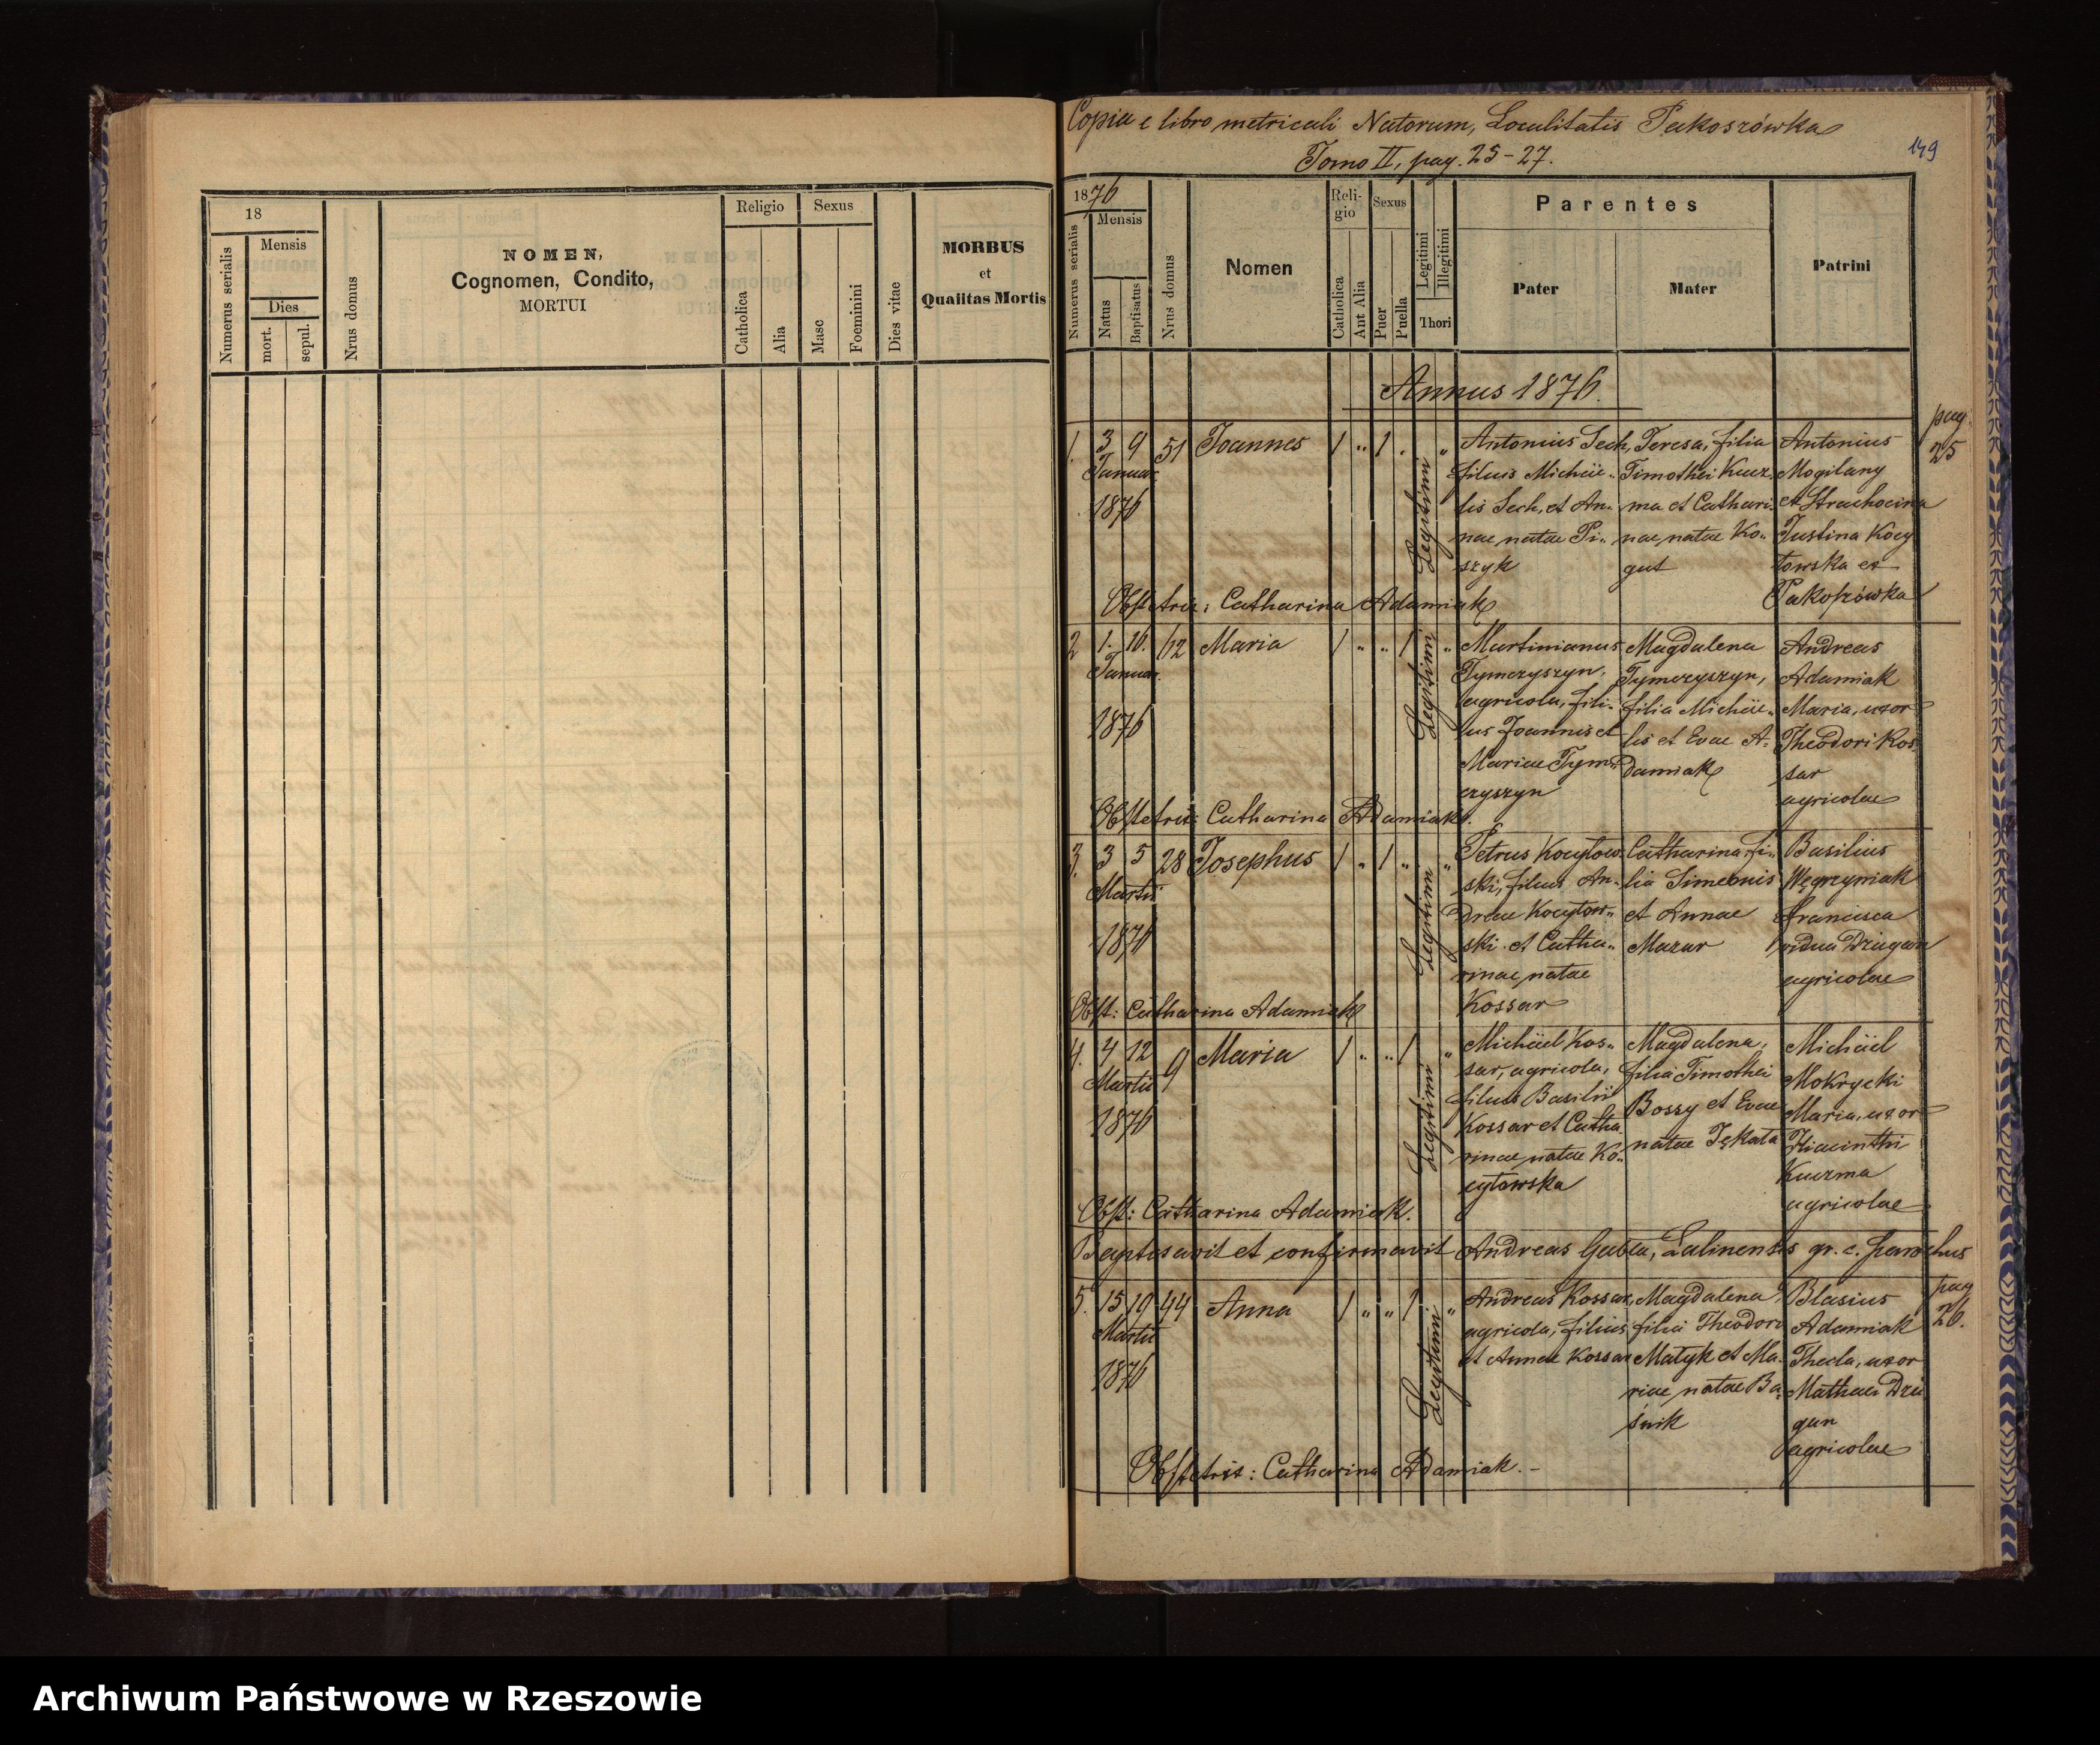 18
Mensis
Dies
Numerus serialis
mort.
sepul.
Nrus domus
NOMEN,
Cognomen, Condito,
MORTUI
Religio
Catholica
Alia
Sexus
Masc
Foeminini
Dies vitae
MORBUS
et
Qualitas Mortis
Copia e libro metricali Natorum, Localitatis Pakoszówka
Tomo II, pag. 25-27.
149
1876
Mensis
Numerus serialis
Natus
Baptisatus
Nrus domus
Nomen
Reli-
gio
Catholica
Aut Alia
Sexus
Puer
Puella
Legitimi
Illegitimi
Thori
Parentes
Pater
Mater
Patrini
Annus 1876.
pag.
25
1. 3 9 51 Joannes 1 " 1 . "
Januar.
1876
Legitimi
Antonius Sech,
filius Michae-
lis Sech, et An-
nae natae Pi-
szyk
Teresa, filia
Timothei Kucz
ma et Cathari-
nae natae Ko-
gut
Antonius
Mogilany
et Strachocina
Justina Kocy
towska ex
Pakoszówka
Obstetrix: Catharina Adamiak
2 1. 16. 62 Maria 1 " " 1 "
Januar.
1876
Legitimi
Martinianus
Tymczyszyn,
agricola, fili-
us Joannis et
Mariae Tym-
czyszyn
Magdalena
Tymczyszyn,
filia Michae-
lis et Evae A-
damiak
Andreas
Adamiak
Maria, uxor
Theodori Kos-
sar
agricolae
Obstetrix: Catharina Adamiak.
3. 3 5 28 Josephus 1 " 1 " "
Martii
1876
Legitimi
Petrus Kocytow-
ski, filius An-
dreae Kocytow-
ski et Catha-
rinae natae
Kossar
Catharina fi-
lia Simeonis
et Annae
Mazar
Basilius
Węgrzyniak
Francisca
vidua Dziugan
agricolae
Obst: Catharina Adamiak
4. 4 12 9 Maria 1 " " 1 "
Martii
1876
Legitimi
Michael Kos-
sar, agricola,
filius Basilii
Kossar et Catha
rinae natae Ko-
cytowska
Magdalena,
filia Timothei
Bossy et Evae
natae Tękata
Michael
Mokrycki
Maria, uxor
Hiacinthi
Kuczma
agricolae
Obst: Catharina Adamiak.
Baptisavit et confirmavit Andreas Gabla, Lalinensis gr. c. parochus
pag
26.
5. 15 19 44 Anna 1 " " 1 "
Martii
1876
Legitimi
Andreas Kossar,
agricola, filius
et Annae Kossar
Magdalena,
filia Theodori
Matyk et Ma-
riae natae Ba-
śnik
Blasius
Adamiak
Thecla, uxor
Mathaei Dziu
gan
agricolae
Obstetrix: Catharina Adamiak. -
Archiwum Państwowe w Rzeszowie